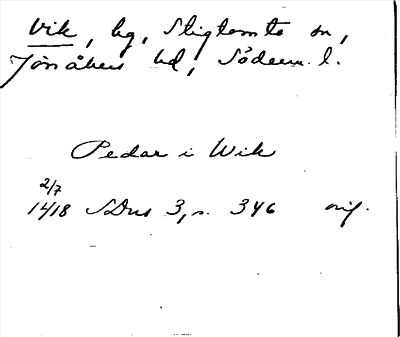 Vik, by, Stigtomta sn,
Jönåkers hd, Söderm. l.
Pedar i Wik
2/7
1418 SDns 3, s. 346 orig.